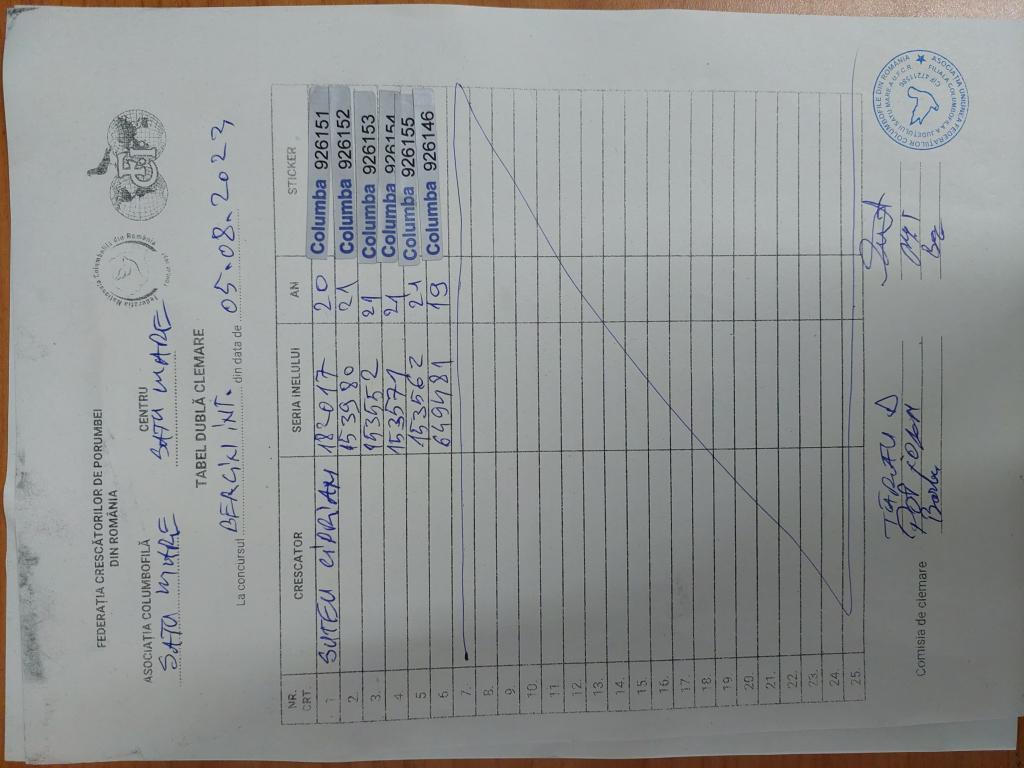 FEDERAȚIA CRESCĂTORILOR DE PORUMBEI
DIN ROMÂNIA
Federația Națională Columbofilă din România
ASOCIAȚIA COLUMBOFILĂ CENTRU
SATU MARE SATU MARE
TABEL DUBLĂ CLEMARE
La concursul BERCIKI INT. din data de 05.08.2023
NR. CRT CRESCATOR SERIA INELULUI AN STICKER
1 SUTEU CIPRIAN 182017 20 Columba 926151
2. 153980 21 Columba 926152
3. 153552 21 Columba 926153
4. 153571 21 Columba 926154
5 153562 21 Columba 926155
6. 649481 19 Columba 926146
7.
8.
9.
10.
11.
12.
13.
14.
15.
16.
17.
18.
19.
20.
21.
22.
23.
24.
25.
Comisia de clemare
POP
ASOCIAȚIA UNIUNEA FEDERAȚIILOR COLUMBOFILE DIN ROMÂNIA
FILIALA COLUMBOFILĂ A JUDEȚULUI SATU MARE A.U.F.C.R.